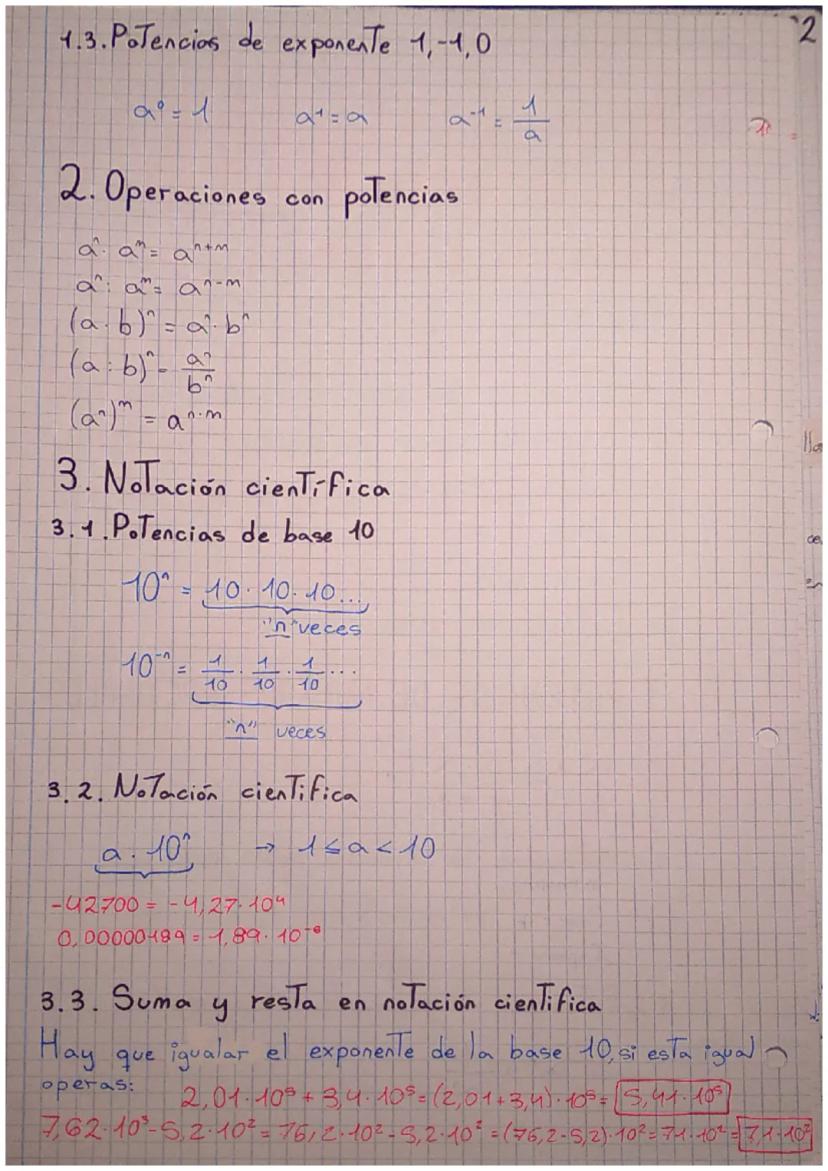 2
1.3. Potencias de exponente 1,-1,0
a⁰ = 1 a¹ = a a⁻¹ = 1/a
2. Operaciones con potencias
aⁿ · aᵐ = aⁿ⁺ᵐ
aⁿ : aᵐ = aⁿ⁻ᵐ
(a · b)ⁿ = aⁿ · bⁿ
(a : b)ⁿ = aⁿ/bⁿ
(aⁿ)ᵐ = aⁿ·ᵐ
3. Notación científica
3.1. Potencias de base 10
10ⁿ = 10 · 10 · 10...
"n" veces
10⁻ⁿ = 1/10 · 1/10 · 1/10 ...
"n" veces
3.2. Notación cientifica
a · 10ⁿ → 1 ≤ a < 10
-42700 = -4,27 · 10⁴
0,00000189 = 1,89 · 10⁻⁶
3.3. Suma y resta en notación cientifica
Hay que igualar el exponente de la base 10, si esta igual
operas:
2,01 · 10⁵ + 3,4 · 10⁵ = (2,01 + 3,4) · 10⁵ = 5,41 · 10⁵
7,62 · 10³ - 5,2 · 10² = 76,2 · 10² - 5,2 · 10² = (76,2 - 5,2) · 10² = 71 · 10² = 7,1 · 10²